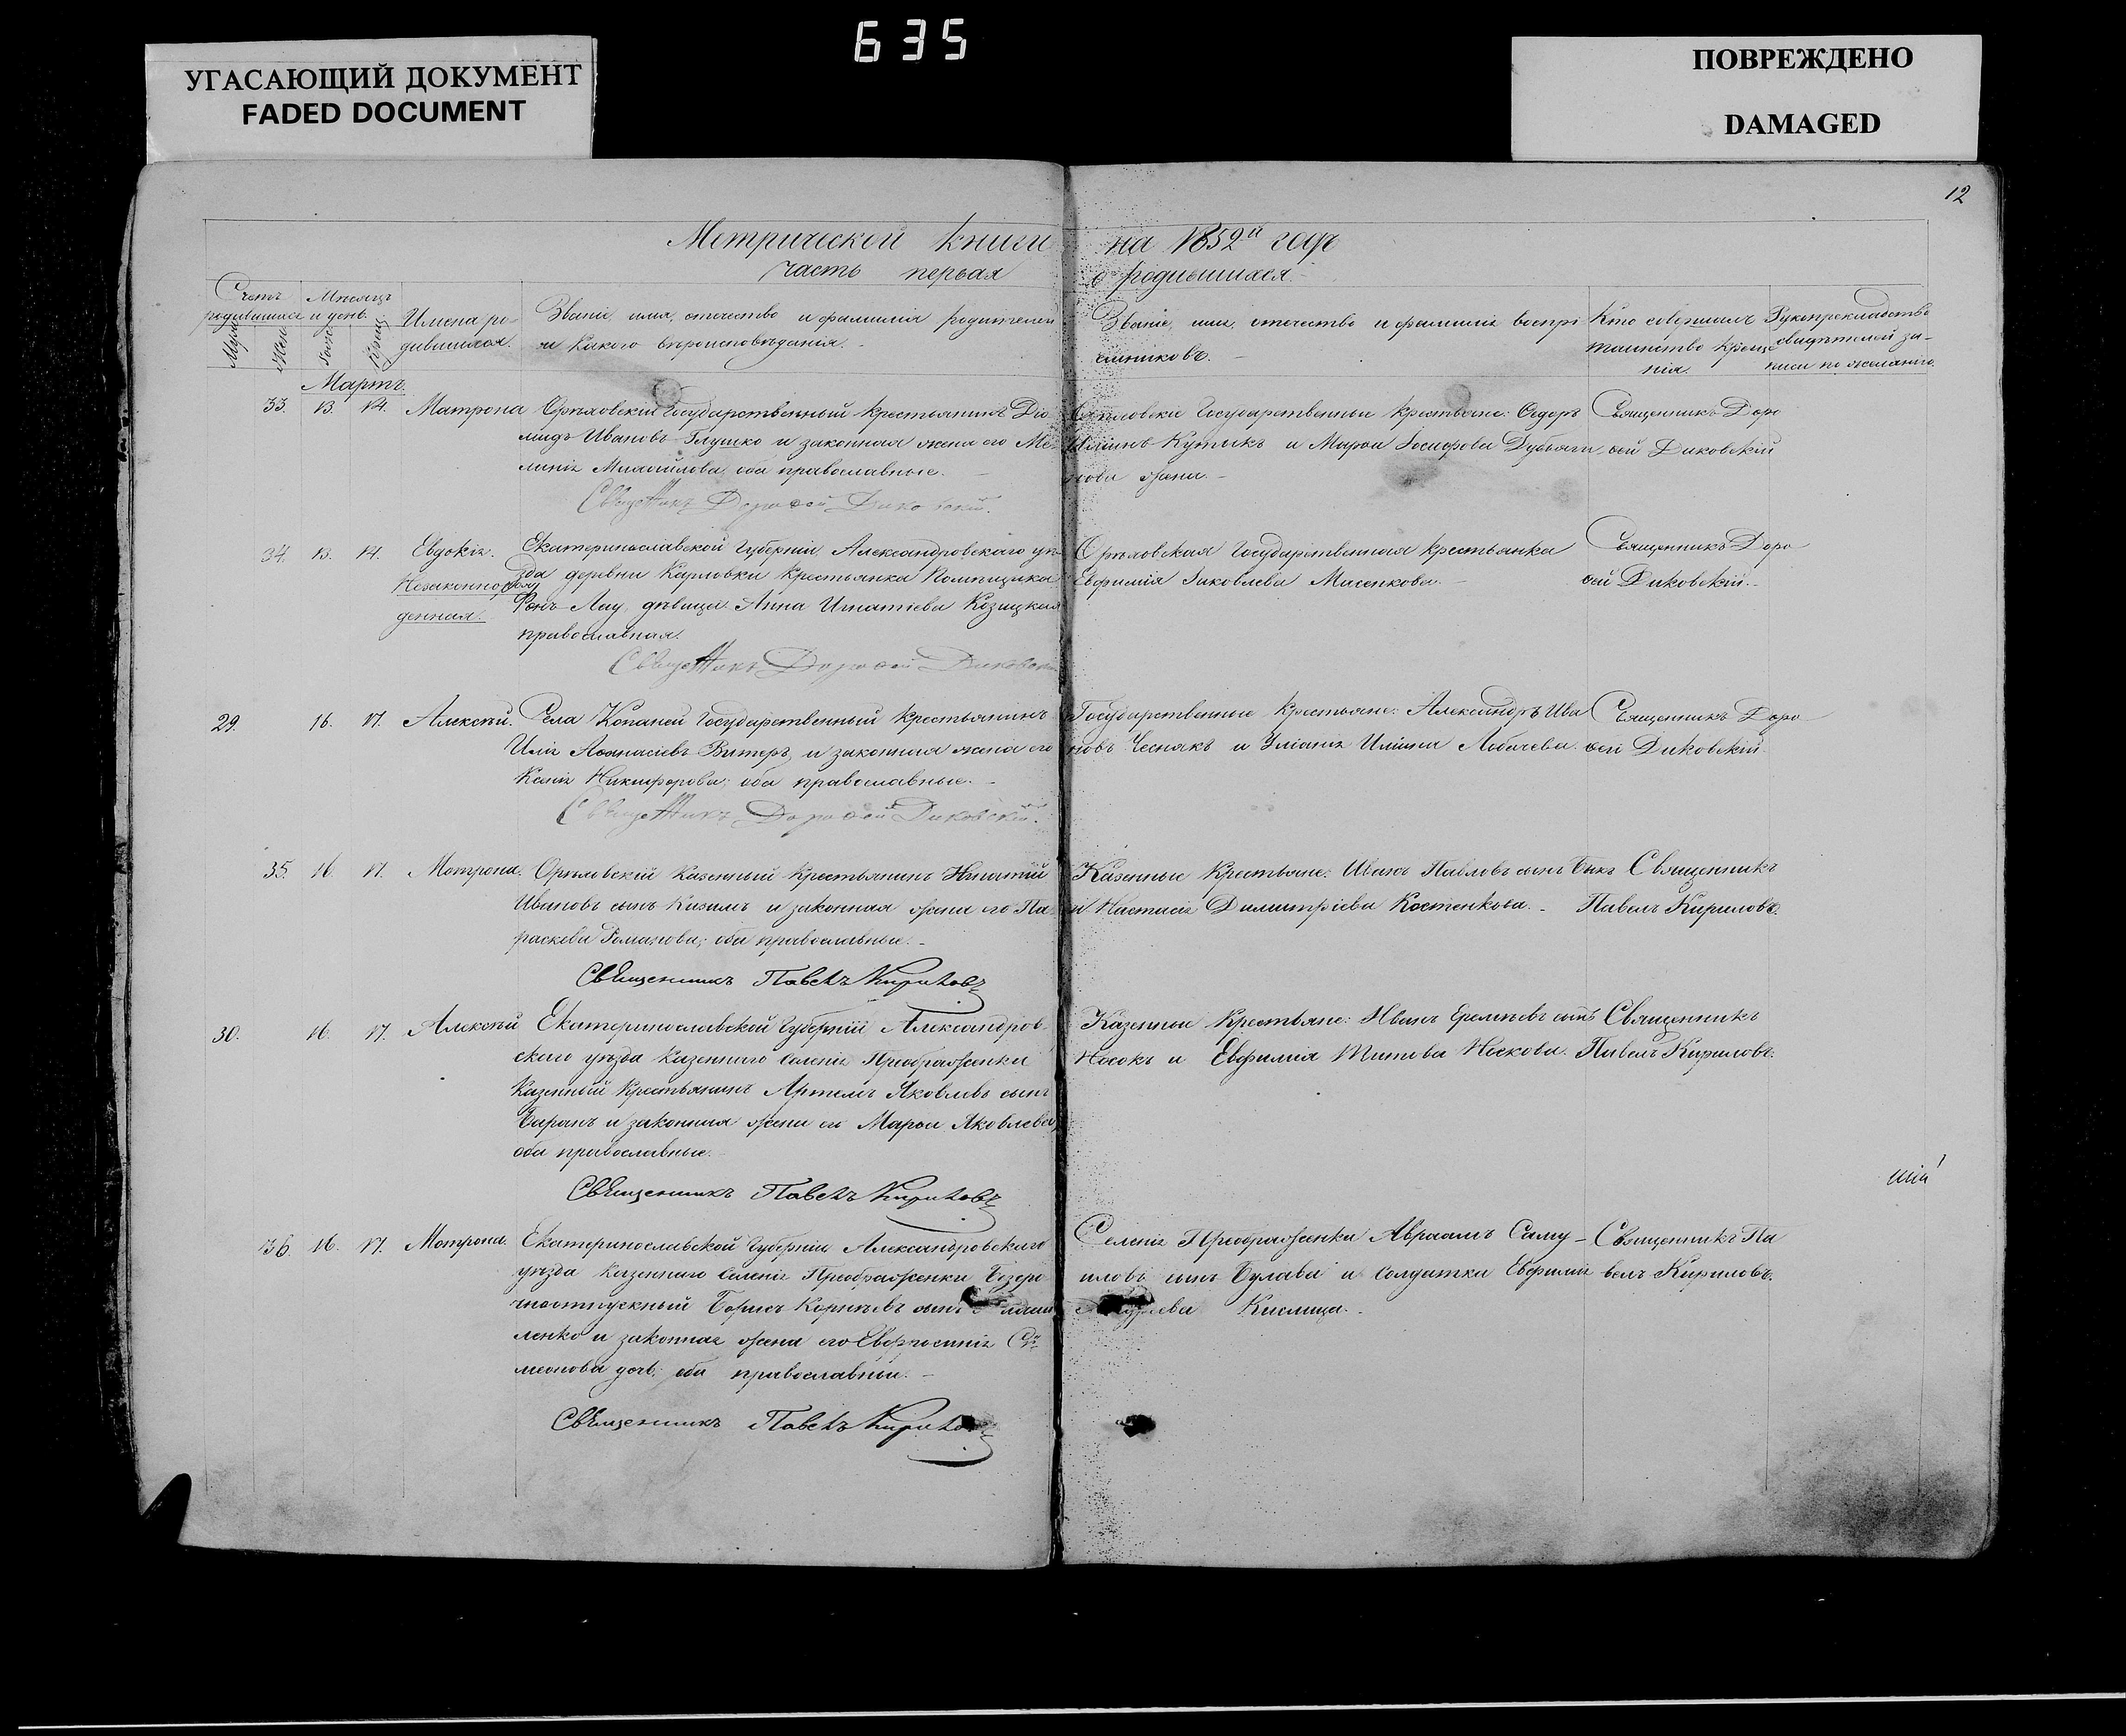 635
УГАСАЮЩИЙ ДОКУМЕНТ
FADED DOCUMENT
ПОВРЕЖДЕНО
DAMAGED
12
Метрической книги на 1852й годъ
часть первая о родившихся.
Счетъ родившихся
Мѣсяцъ и день.
Имена родившихся.
Званіе, имя, отечество и фамилія родителей
и какого вѣроисповѣданія.
Званіе, имя, отечество и фамилія воспрі
емниковъ.
Кто совершалъ
таинство креще
нія.
Рукоприкладство
свидѣтелей за-
писи по желанію.
Муж.
Жен.
Мартъ.
33. 13. 14. Матрона
Орѣховскій Государственный крестьянинъ Діо
мидъ Ивановъ Глушко и законная жена его Ме
ланія Михайлова, оба православные.
Священникъ Дорофей Диковскій.
Орѣховскіе Государственные крестьяне: Ѳедоръ
Ильинъ Кутыкъ и Марѳа Іосифова
нова жена.
Священникъ Доро
ѳей Диковскій
34. 13. 14. Евдокія.
Незаконнорож
денная.
Екатеринославской Губерніи Александровскаго уѣ
зда деревни Карловки крестьянка Помѣщика
Фонъ Лау, дѣвица Анна Игнатіева Козицкая
православная.
Священникъ Дорофей Диковскій
Орѣховская Государственная крестьянка
Евфимія Іаковлева Масенкова.
Священникъ Доро
ѳей Диковскій.
29. 16. 17. Алексѣй.
Села Копаней Государственный крестьянинъ
Илія Аѳанасіевъ Витеръ, и законная жена его
Ксенія Никифорова; оба православные.
Священникъ Дорофей Диковскій.
Государственные крестьяне: Александръ Ива
новъ Чеснякъ и Уліанія Ильина Лобачева.
Священникъ Доро
ѳей Диковскій.
35. 16. 17. Мотрона.
Орѣховскій казенный крестьянинъ Игнатій
Ивановъ сынъ и законная жена его Па
раскева Романова; оба православные.
Священникъ Павелъ Кириловъ
Казенные крестьяне: Иванъ Павловъ сынъ Быкъ
и Настасія Димитріева Костенкова.
Священникъ
Павелъ Кириловъ.
30. 16. 17. Алексѣй
Екатеринославской Губерніи Александров
скаго уѣзда казеннаго селенія Преображенки
казенный крестьянинъ Артемъ Яковлевъ сынъ
Баранъ и законная жена его Марѳа Яковлева,
оба православные.
Священникъ Павелъ Кириловъ
Казенные крестьяне: Иванъ Еремѣевъ сынъ
Носокъ и Евфимія Титова Носкова.
Священникъ
Павелъ Кириловъ.
36. 16. 17. Мотрона.
Екатеринославской Губерніи Александровскаго
уѣзда казеннаго селенія Преображенки Безсро
чноотпускный Борисъ Корнѣевъ сынъ
ленко и законная жена его Евфросинія Си
меонова дочь; оба православные.
Священникъ Павелъ Кирилов
Селенія Преображенки Авраамъ Саму-
иловъ сынъ Булава и солдатка Евфимія
Кислица.
Священникъ Па
велъ Кириловъ.